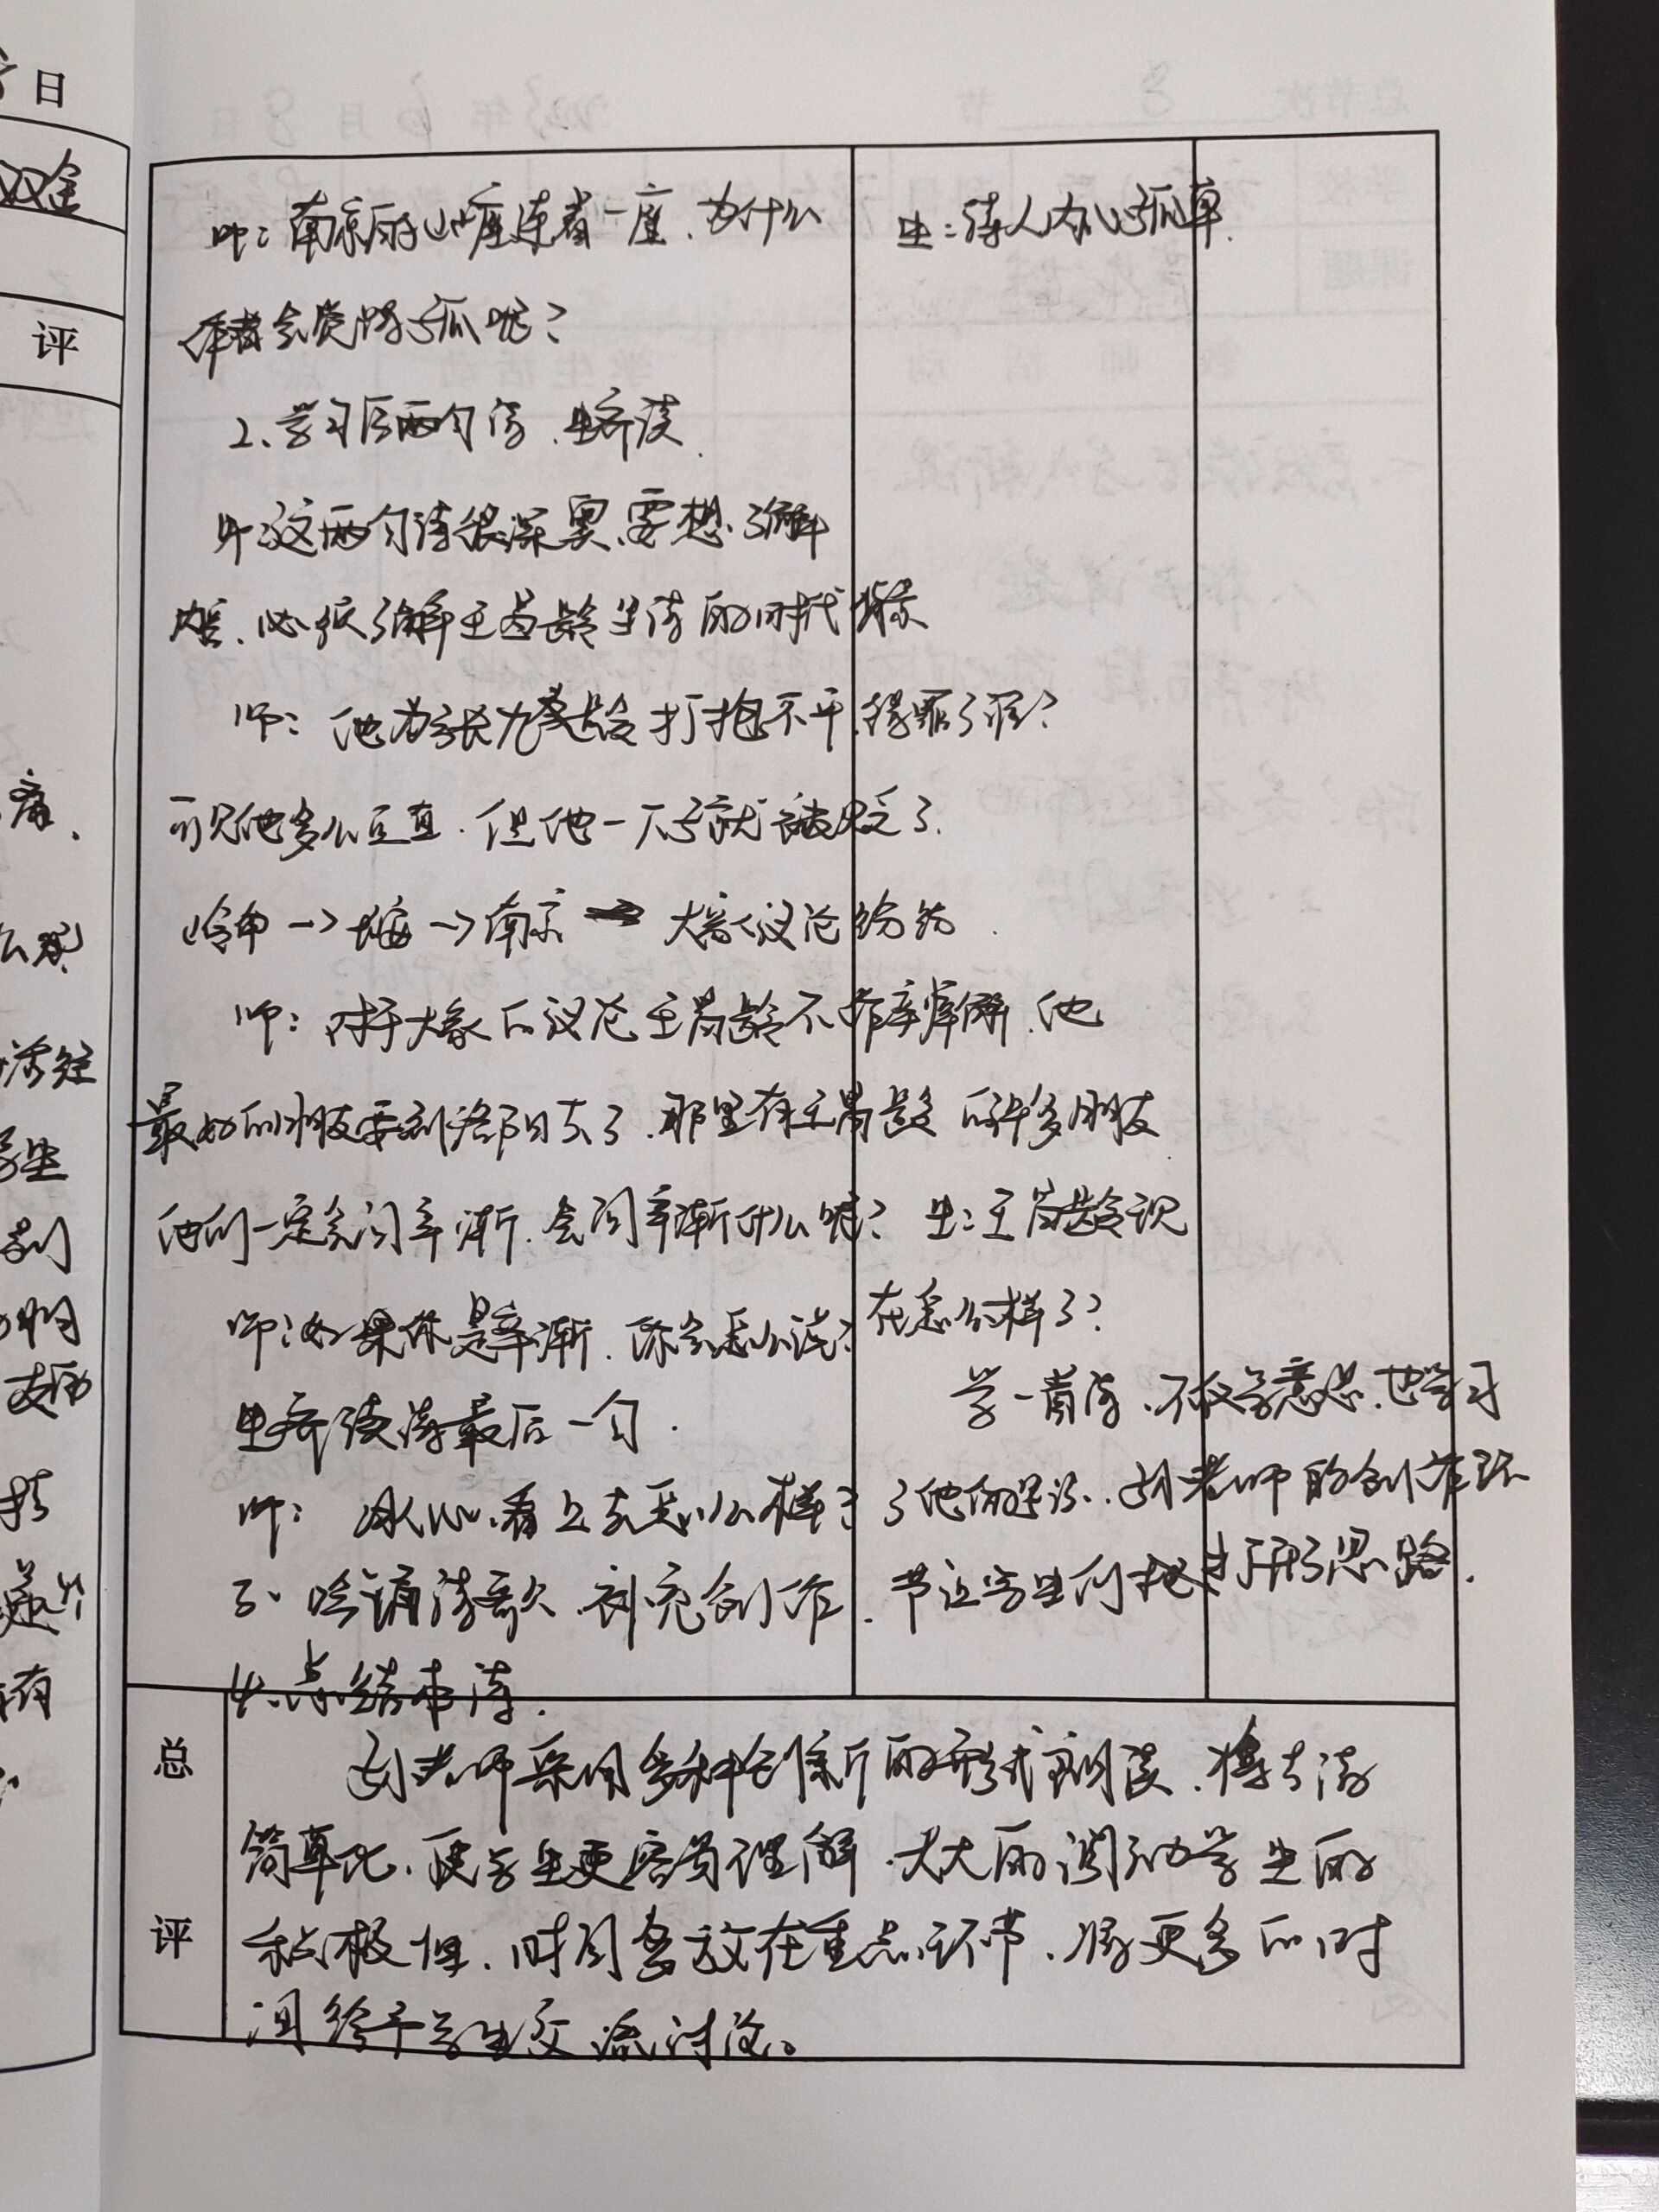 日
评
师：南京的山一座连着一座、为什么
作者会觉得孤呢？
生：诗人内心孤单.
2、学习后两句诗、生齐读.
师这两句诗很深奥、要想了解
内容、必须了解王昌龄生活的时代背景
师：他为张九龄打抱不平.得罪了谁？
可见他多么正直.但他一下子就被贬了.
岭南→ →南京 大家议论纷纷.
师：对于大家的议论王昌龄不作辛辩解.他
最好的朋友要到洛阳去了.那里有王昌龄的许多朋友
他们一定会问辛渐.会问辛渐什么呢？
生：王昌龄现
在怎么样了？
师：如果你是辛渐.你会怎么说？
生齐读诗最后一句.
师：冰心、看上去怎么样？
3、吟诵诗歌、补充创作.
4、总结本诗.
学一首诗、不仅学意思.也学习
了他的、刘老师的创作环
节让学生们打开了思路.
总
评
刘老师采用多种创新的形式朗读、将古诗
简单化、使学生更容易理解.大大的调动学生的
积极性.时间多放在重点环节、将更多的时
间给予学生交流讨论。